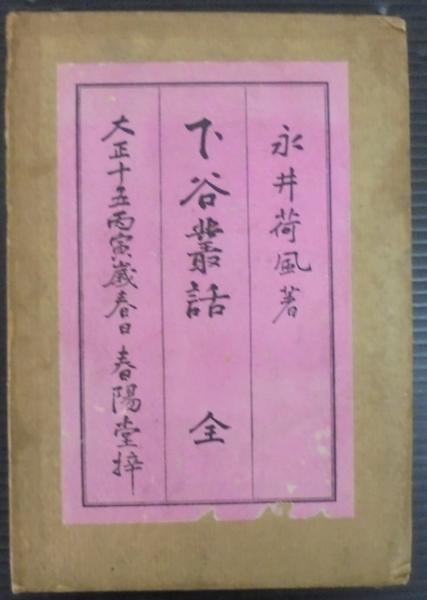 永井荷風著
下谷叢話 全
大正十五丙寅歳春日 春陽堂梓